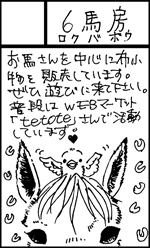 6馬房
ロクバボウ
お馬さんを中心に布小
物を販売しています。
ぜひ遊びに来て下さい。
普段はWEBマーケット
「tetote」さんで活動
しています。